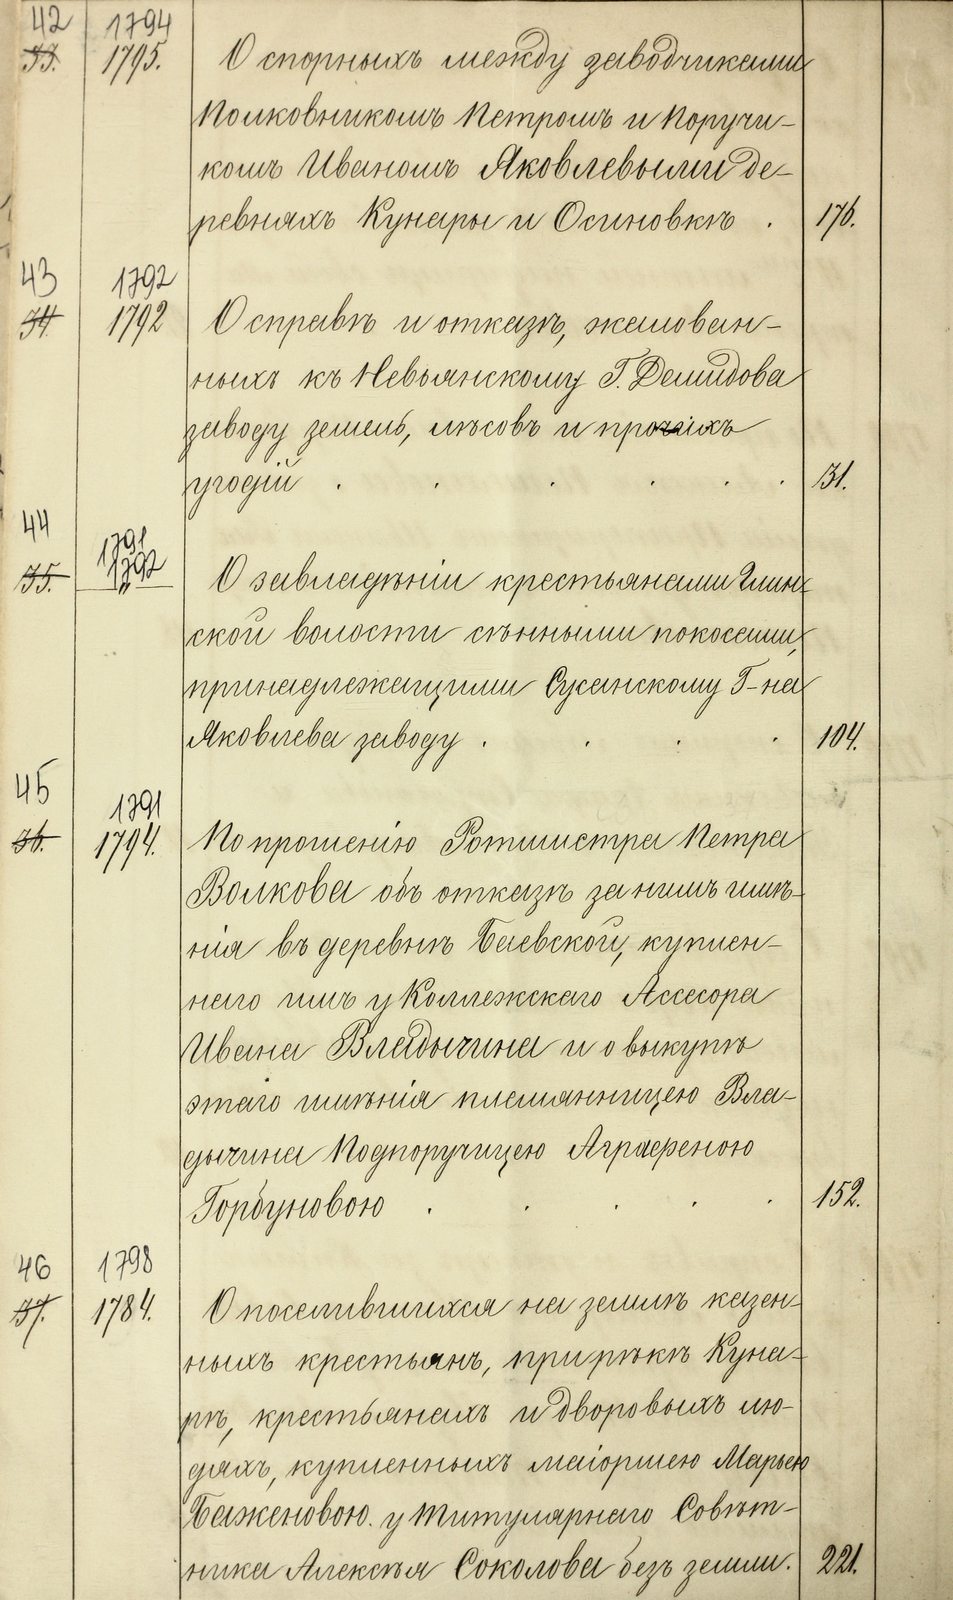 42 1794
33. 1795. О спорныхъ между заводчиками
Полковникомъ Петромъ и Поручи-
комъ Иваномъ Яковлевыми де-
ревняхъ Кунары и Осиновкѣ . 176.
43 1792
34. 1792 О справкѣ и отказѣ, жалован-
ныхъ къ Невьянскому Г. Демидова
заводу земель, лѣсовъ и прочихъ
угодій . . . . . . 131.
44 1791
35. 1792 О завладѣніи крестьянами Глин-
ской волости сѣнными покосами,
принадлежащими Сусанскому Г-на
Яковлева заводу . . . . 104.
45 1791
36. 1794. По прошенію Ротмистра Петра
Волкова объ отказѣ за нимъ имѣ-
нія въ деревнѣ Баевской, куплен-
наго имъ у Коллежскаго Ассесора
Ивана Владычина и о выкупѣ
этаго имѣнія племянницею Вла-
дычина Подпоручицею Аграфеною
Горбуновою . . . . . 152.
46 1798
37. 1784. О поселившихся на землѣ казен-
ныхъ крестьянъ, при рѣкѣ Куна-
рѣ, крестьянахъ и дворовыхъ лю-
дяхъ, купленныхъ маіоршею Марьею
Баженовою у Титулярнаго Совѣт-
ника Алексѣя Соколова безъ земли. 221.